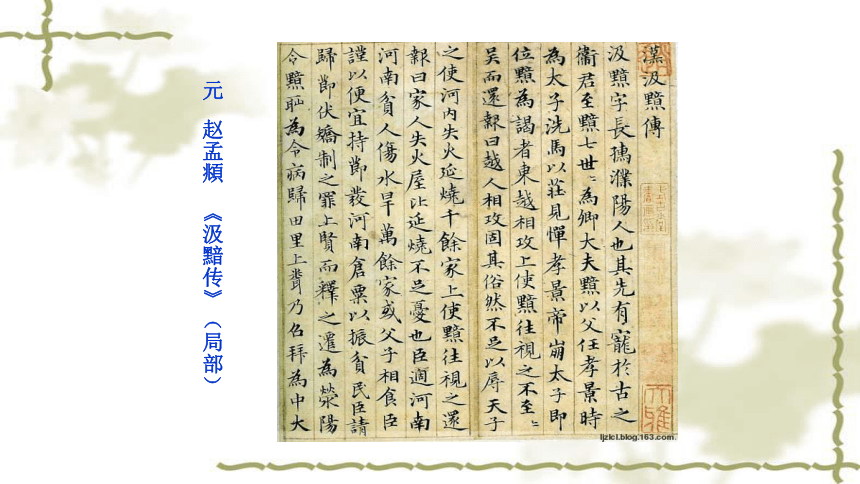 漢汲黯傳
汲黯字長孺濮陽人也其先有寵於古之
衛君至黯七世〻為卿大夫黯以父任孝景時
為太子洗馬以莊見憚孝景帝崩太子即
位黯為謁者東越相攻上使黯往視之不至〻
吳而還報曰越人相攻固其俗然不足以辱天子
之使河内失火延燒千餘家上使黯往視之還
報曰家人失火屋比延燒不足憂也臣適河南
河南貧人傷水旱萬餘家或父子相食臣
謹以便宜持節發河南倉粟以振貧民臣請
歸節伏矯制之罪上賢而釋之遷為滎陽
令黯恥為令病歸田里上聞乃召拜為中大
元 赵孟頫 《汲黯传》（局部）
ljzlcl.blog.163.com